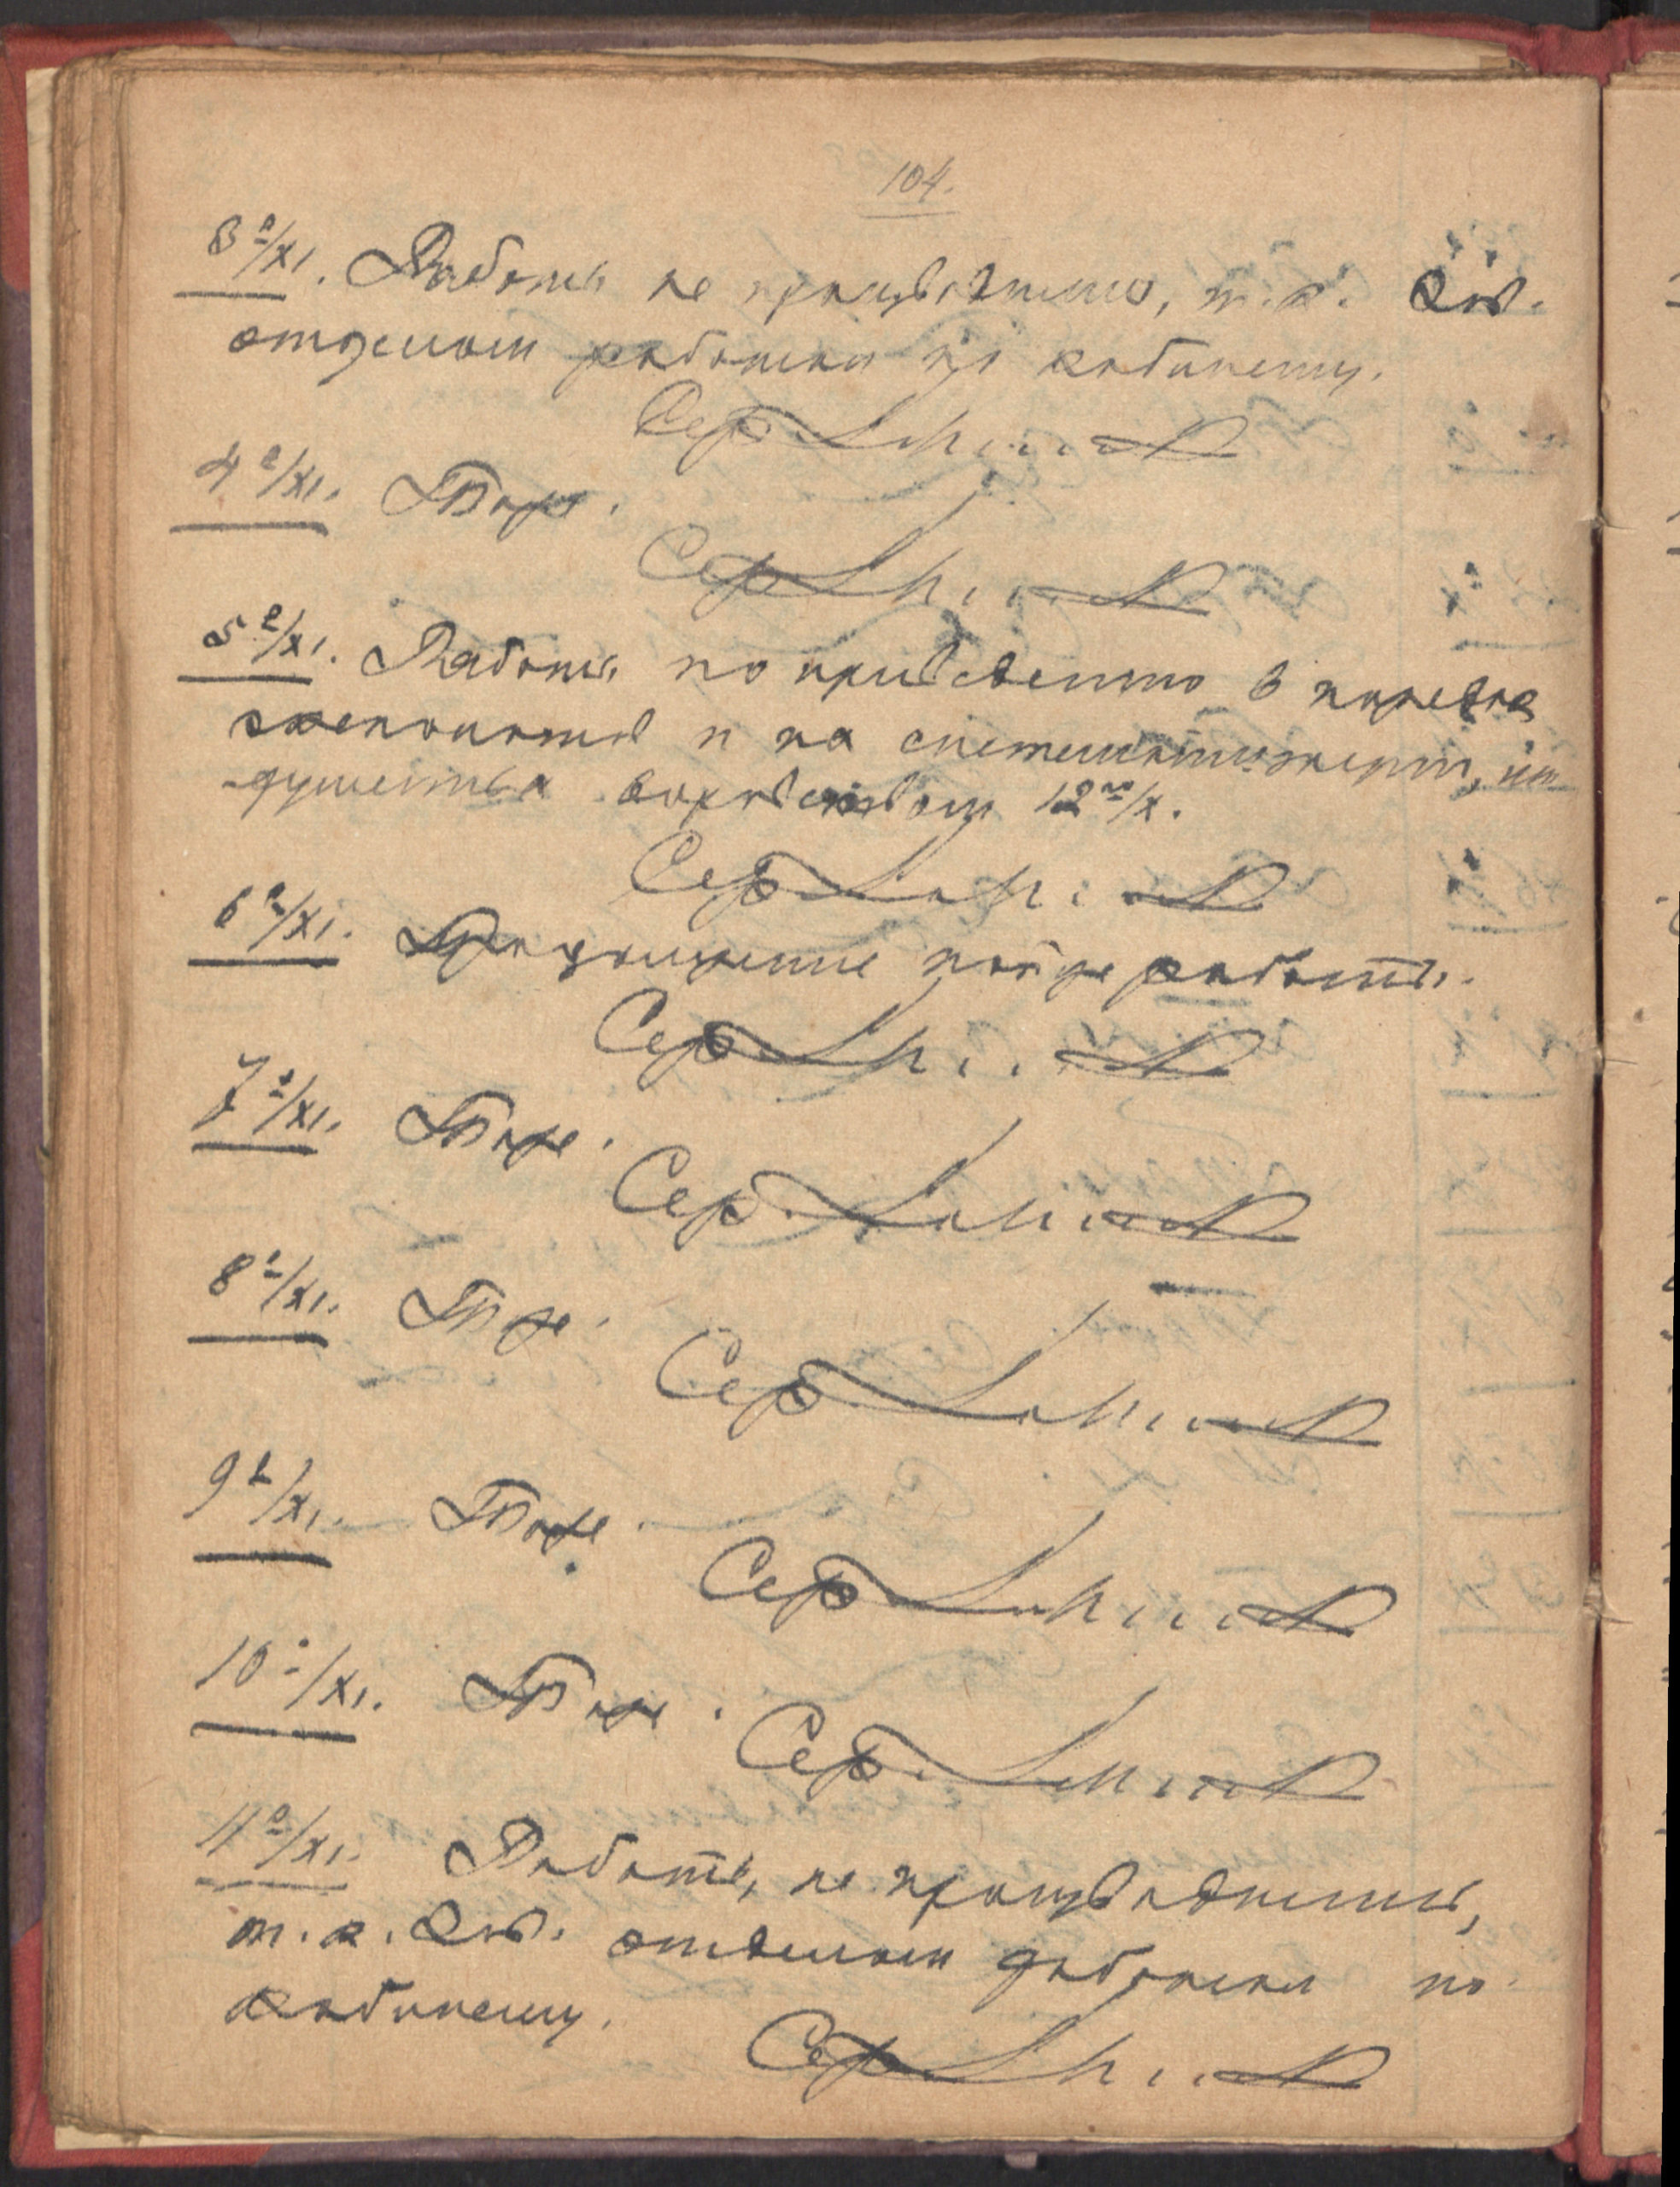 104.
3е/XI. Работы не производились, т.к. Зав.
отделом работал по кабинету.
Сер
4е/XI. Тоже.
Сер
5е/XI. Работы по приведению в порядок
экспонатов и на
12го/X.
Сер
6е/XI. Продолжение той же работы.
Сер
7е/XI. Тоже.
Сер
8е/XI. Тоже.
Сер
9е/XI. Тоже.
Сер
10е/XI. Тоже.
Сер
11е/XI. Работы не производились,
т.к. Зав. отделом работал по
кабинету.
Сер